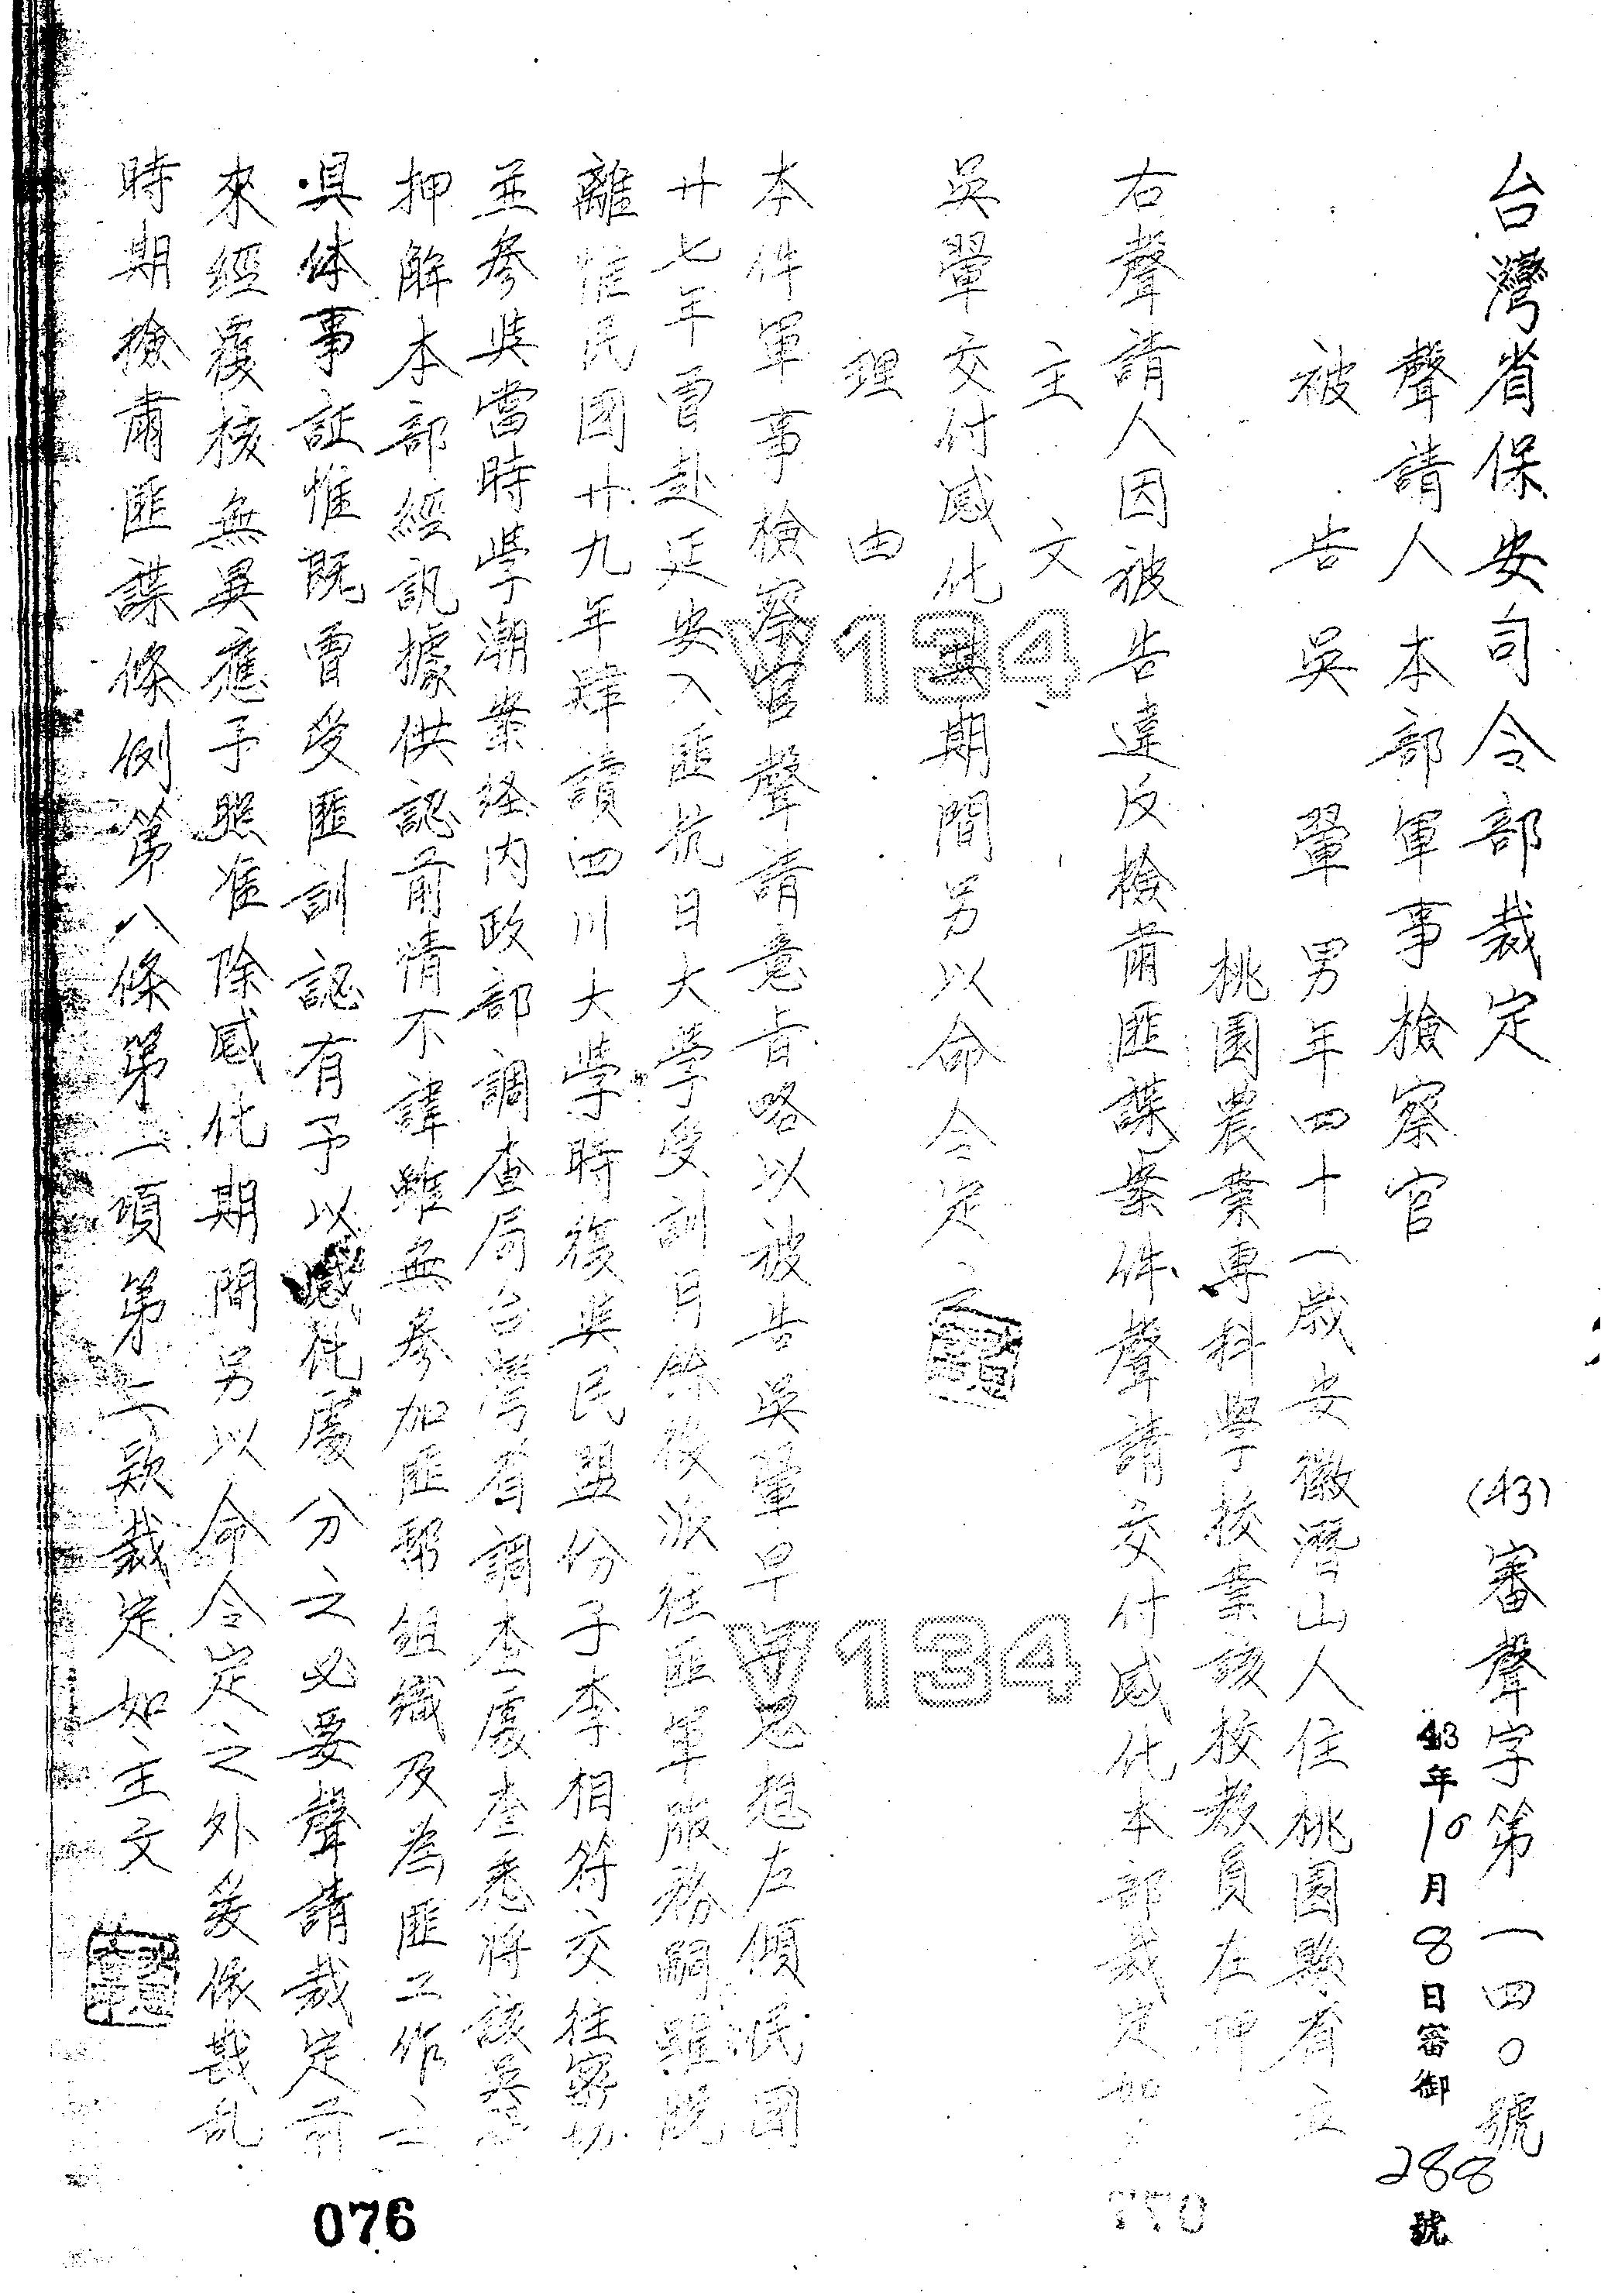 台灣省保安司令部裁定　(43)審聲字第一四〇號
43年10月8日審御288號
聲請人　本部軍事檢察官
被告　吳翬　男年四十一歲安徽潛山人住桃園縣省立
桃園農業專科學校業該校教員在押
右聲請人因被告違反檢肅匪諜案件聲請交付感化本部裁定如
主文
吳翬交付感化其期間另以命令定之
理由
本件軍事檢察官聲請意旨略以被告吳翬早年思想左傾民國
廿七年曾赴延安入匪抗日大學受訓月餘後派往匪軍服務嗣雖脫
離惟民國廿九年肄讀四川大學時復與民盟份子李相符交往密切
並參與當時學潮案経內政部調查局台灣省調查處查悉將該吳翬
押解本部經訊據供認前情不諱雖無參加匪幫組織及為匪工作之
具体事証惟既曾受匪訓認有予以感化處分之必要聲請裁定前
來經覆核無異應予照准除感化期間另以命令定之外爰依戡乱
時期檢肅匪諜條例第八條第一項第二款裁定如主文
076
077
V134
V134